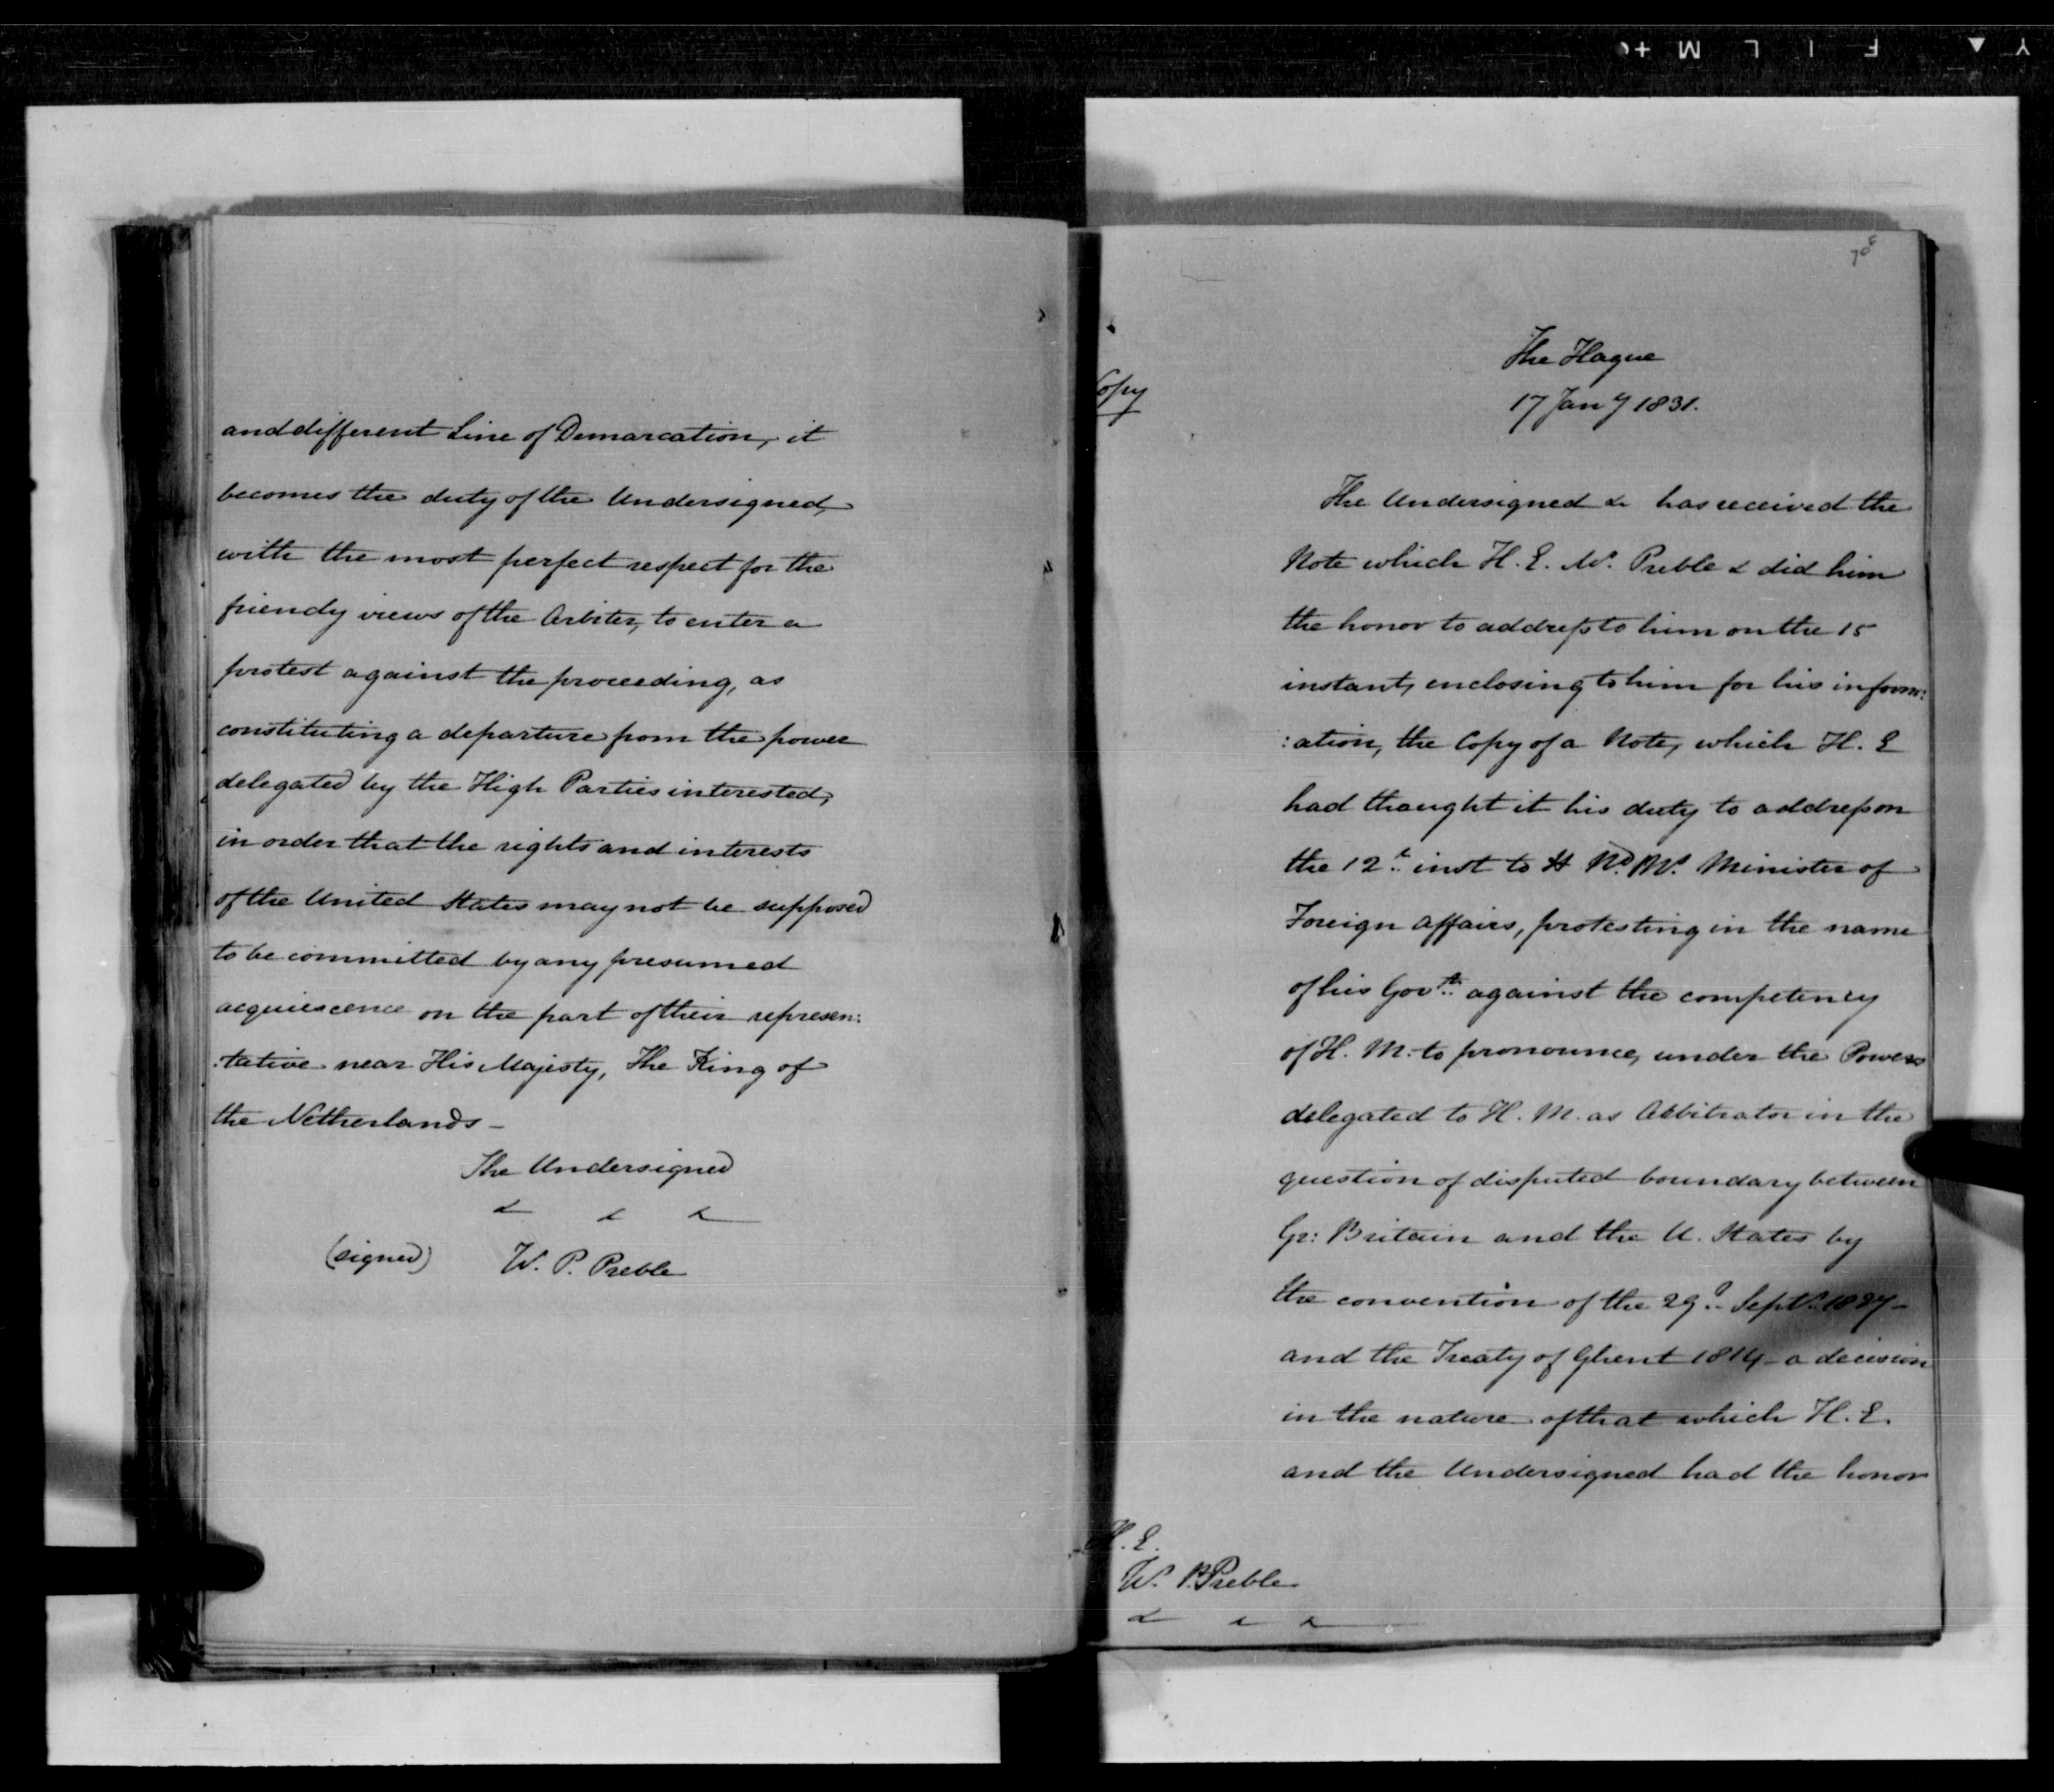 and different Line of Demarcation, it
becomes the duty of the Undersigned,
with the most perfect respect for the
friendy views of the Arbiter, to enter a
protest against the proceeding, as
constituting a departure from the power
delegated by the High Parties interested,
in order that the rights and interests
of the United States may not be supposed
to be committed by any presumed
acquiescence on the part of their represen:
:tative near His Majesty, The King of
the Netherlands -
The Undersigned
& & &
(signed) W. P. Preble
Copy
The Hague
17 Jany 1831.
The Undersigned &c has received the
Note which H. E. Mr. Preble & did him
the honor to address to him on the 15
instant, enclosing to him for his inform:
:ation, the Copy of a Note, which H. E
had thought it his duty to address on
the 12th inst to H Nd. Ms. Minister of
Foreign Affairs, protesting in the name
of his Govt. against the competency
of H. M. to pronounce, under the Powers
delegated to H. M. as Arbitrator in the
question of disputed boundary between
Gr: Britain and the U. States by
the convention of the 29th Septr. 1827 -
and the Treaty of Ghent 1814 - a decision
in the nature of that which H. E.
and the Undersigned had the honor
H. E.
W. P. Preble
& & &